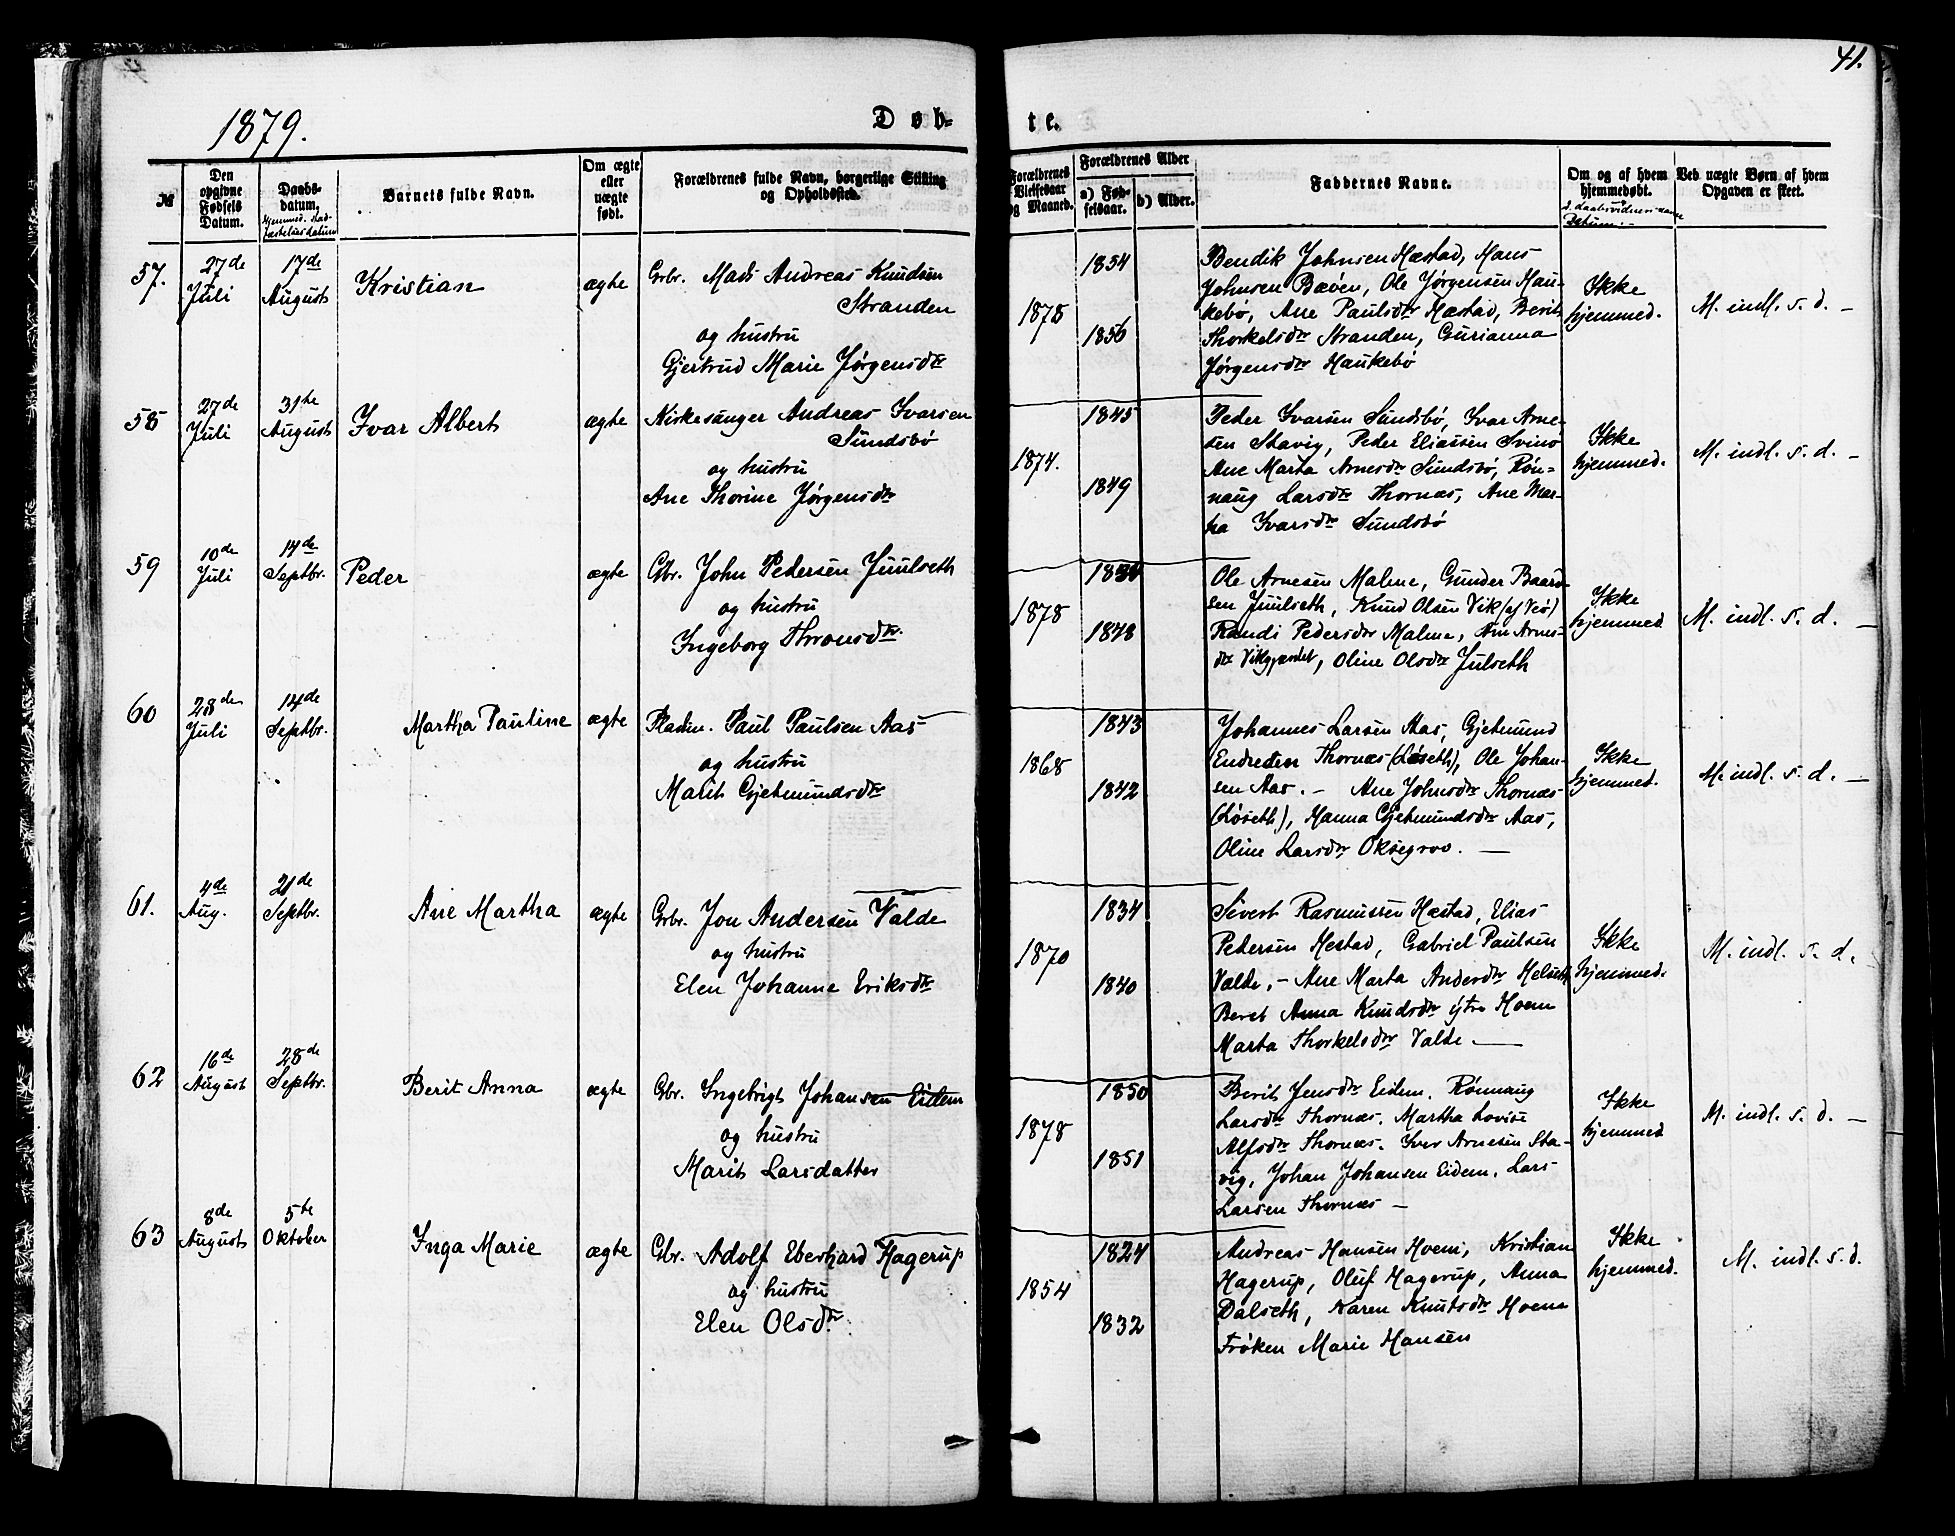 41.
1879.
Døb-
te.
№
Den opgivne Fødsels Datum.
Daabs-datum.
Barnets fulde Navn.
Om ægte eller uægte født.
Forældrenes fulde Navn, borgerlige Stilling og Opholdssted.
Forældrenes Vielsesaar og Maaned.
Forældrenes Alder
a) Fødselsaar.
b) Alder.
Faddernes Navne.
Om og af hvem hjemmedøbt.
Ved uægte Børn af hvem Opgaven er skeet.
57.
27de Juli
17de August
Kristian
ægte
Gbr. Mads Andreas Knudsen
Stranden
og hustru
Gjertrud Marie Jørgensdtr
1875
1854
1856
Bendik Johnsen Hæstad, Hans
Johnsen Bævên, Ole Jørgensen Hau-
kebø, Ane Paulsdtr Hæstad, Berit
Thorkelsdtr Stranden, Gurianna
Jørgensdtr Haukebø
Ikke
hjemmed.
M. indl. s. d. -
58
27de Juli
31te August
Ivar Albert
ægte
Kirkesanger Andreas Ivarsen
Sundsbø
og hustru
Ane Thorine Jørgensdtr
1874.
1845
1849
Peder Ivarsen Sundsbø, Ivar Arne-
sen Stavig, Peder Eliassen Svinø
Ane Marta Arnesdtr Sundsbø, Røn-
naug Larsdtr Thornæs, Ane Mar-
ta Ivarsdtr Sundsbø
Ikke
hjemmed.
M. indl. s. d. -
59
10de Juli
14de Septbr.
Peder
ægte
Gbr. John Pedersen Juulseth
og hustru
Ingeborg Thronsdtr.
1878
1848
Ole Arnesen Malme, Gunder Baard-
sen Juulseth, Knud Olsen Vik (af Veø)
Randi Pedersdtr Malme, Ane Arnes-
dtr Vikgjærdet, Oline Olsdtr Julseth
Ikke
hjemmed
M. indl. s. d. -
60
28de Juli
14de Septbr.
Martha Pauline
ægte
Pladsm. Paul Paulsen Aas
og hustru
Marit Gjetmundsdtr
1868
1843
1842
Johannes Larsen Aas, Gjetmund
Endresen Thornæs (Løseth), Ole Johan-
sen Aas. - Ane Johnsdtr Thornæs
(Løseth), Hanna Gjetmundsdtr Aas,
Oline Larsdtr Oksegrov. -
Ikke
hjemmed.
M. indl. s. d. -
61.
4de Aug.
21de Septbr.
Ane Martha
ægte
Gbr. Jon Andersen Valde
og hustru
Elen Johanne Eriksdtr
1870
1834
1840
Sivert Rasmussen Hæstad, Elias
Pedersen Hestad, Gabriel Paulsen
Valde, - Ane Marta Andersdtr Helseth
Beret Anna Knudsdtr ytre Hoem
Marta Thorkelsdtr Valde. -
Ikke
hjemmed.
M. indl. s. d.
62
16de August
28de Septbr.
Berit Anna
ægte
Gbr. Ingebrigt Johansen Eidem
og hustru
Marit Larsdatter
1878
1850
1851
Berit Jensdtr Eidem. Rønnaug
Larsdtr Thornæs. Martha Lovise
Alfsdtr Thornæs. Iver Arnesen Sta-
vig, Johan Johansen Eidem. Lars
Larsen Thornæs -
Ikke
hjemmed
M. indl. s. d. -
63
8de August
5te Oktober
Inga Marie
ægte
Gbr. Adolf Eberhard Hagerup
og hustru
Elen Olsdtr.
1854
1824
1832
Andreas Hansen Hoem, Kristian
Hagerup, Oluf Hagerup, Anna
Dalseth, Karen Knutsdtr Hoem
Frøken Marie Hansen
Ikke
hjemmed.
M. indl. s. d.